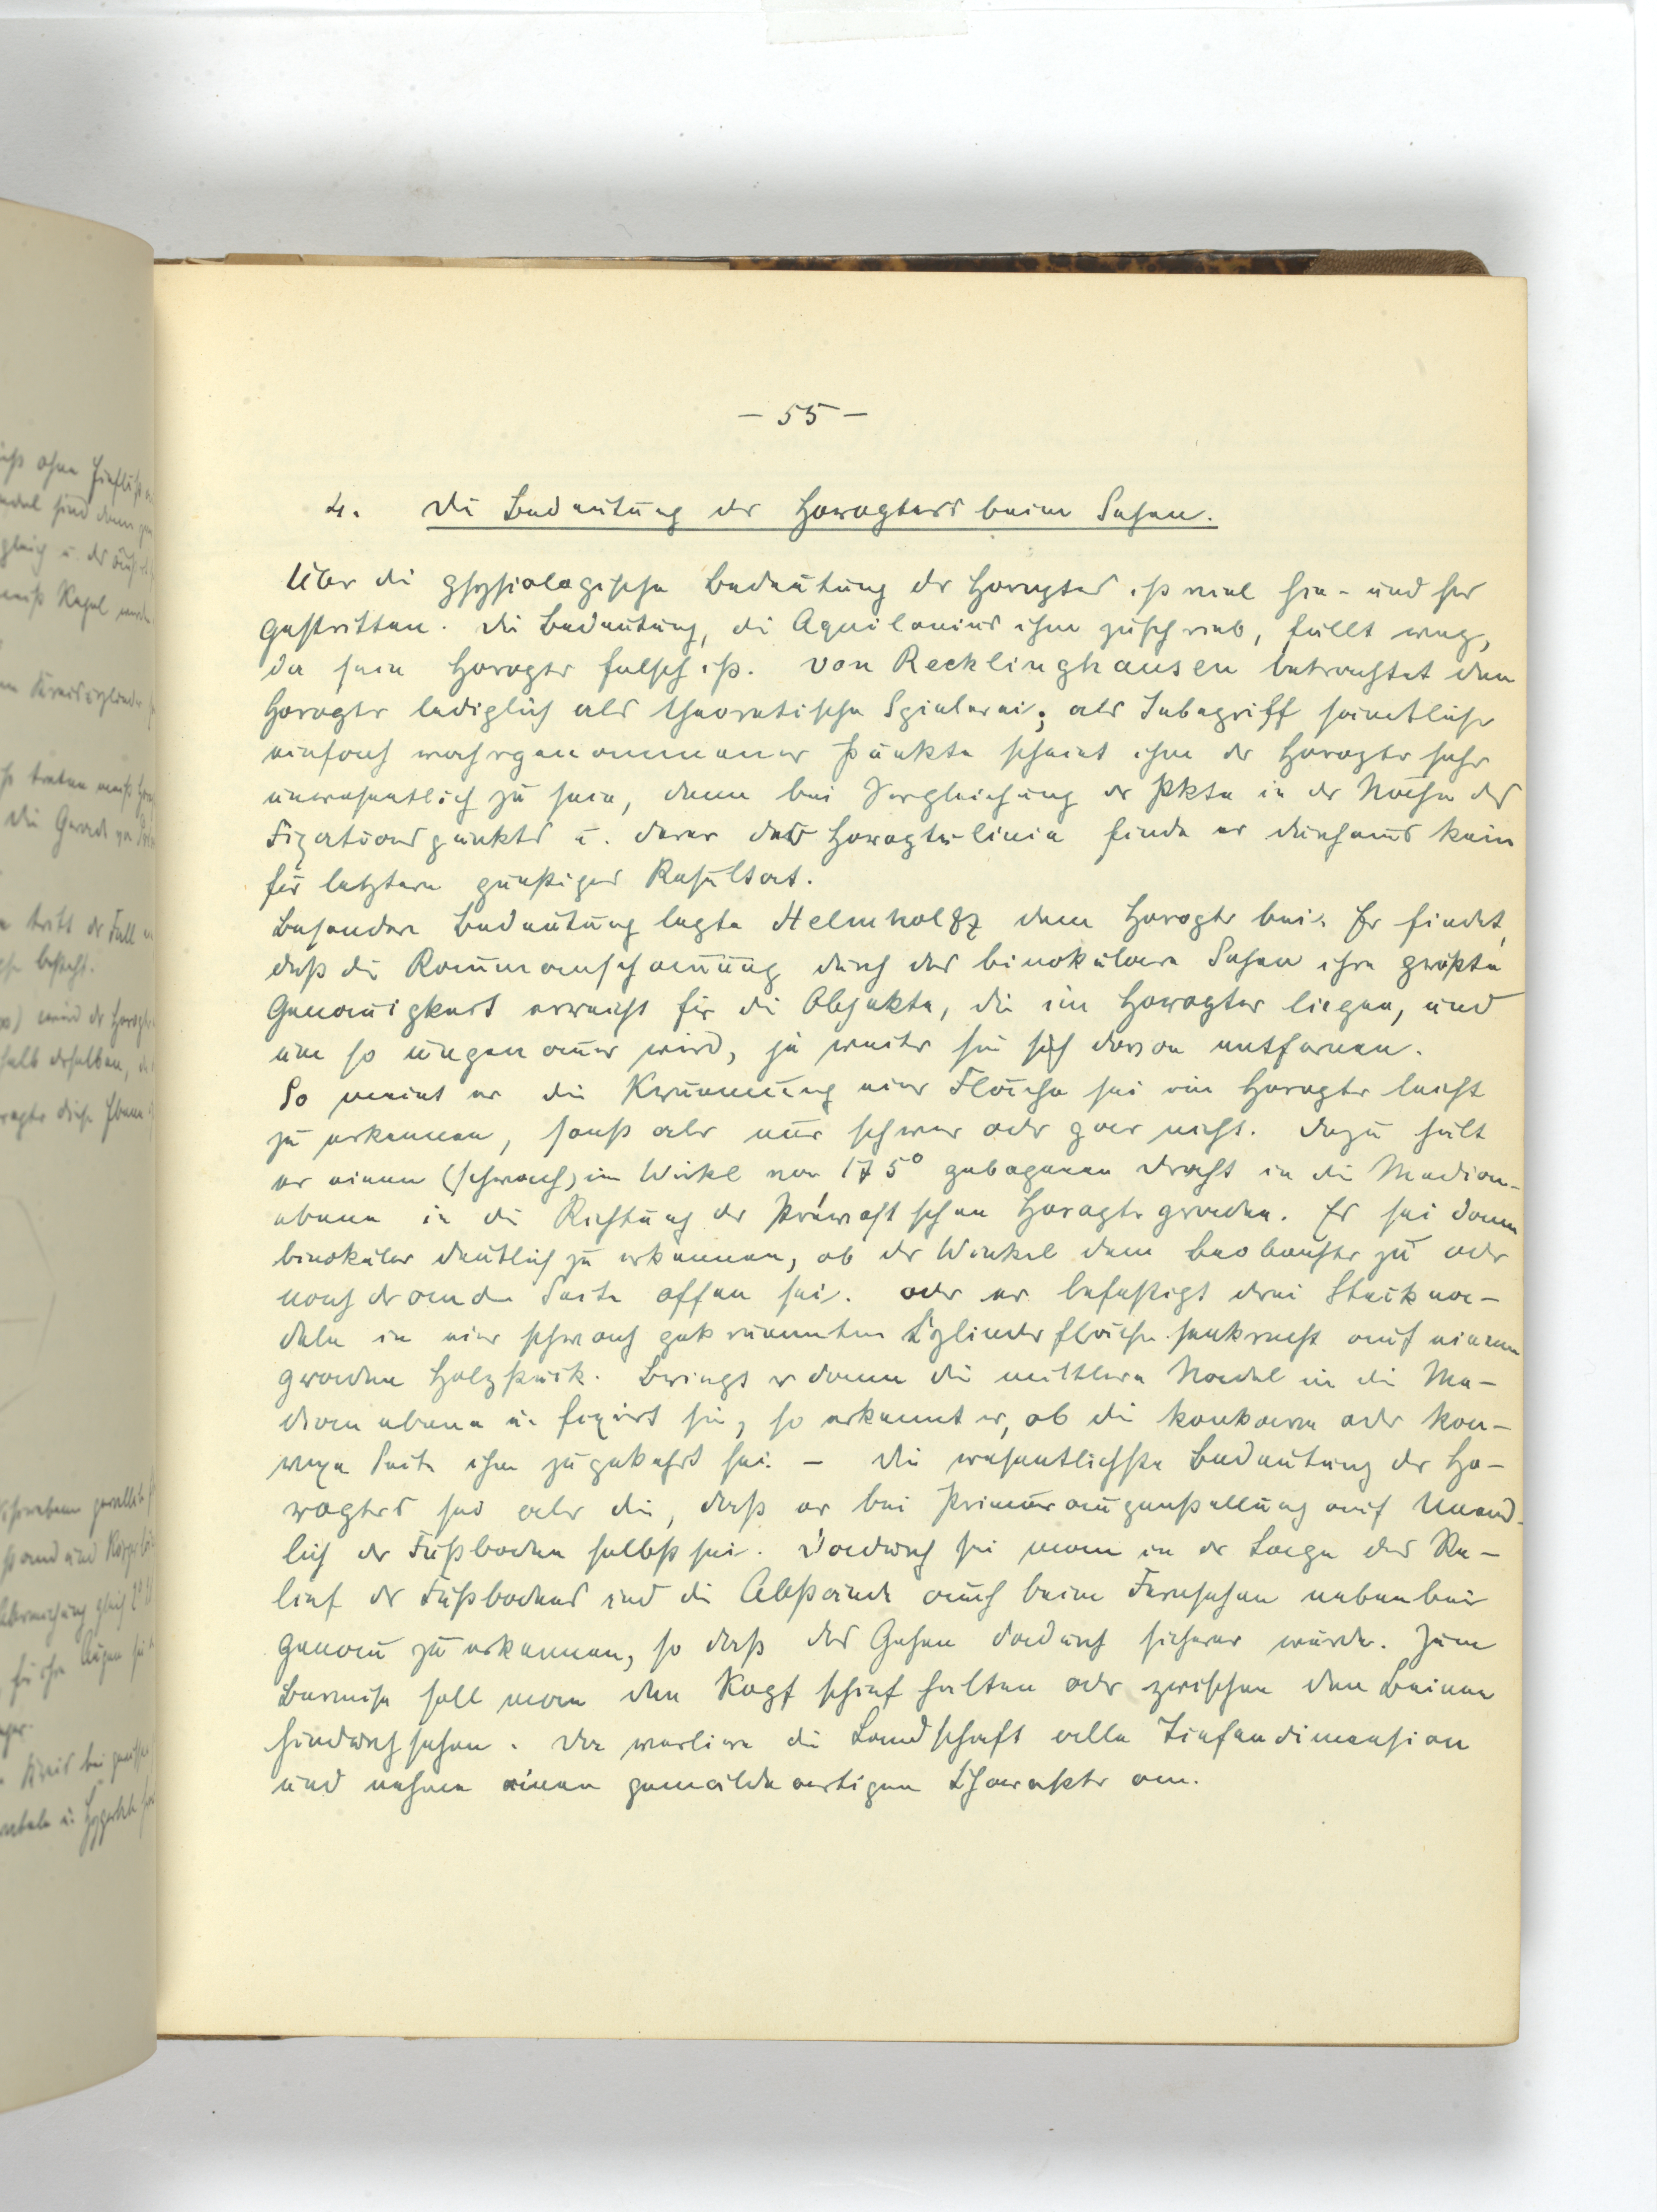 – 55 –
4. Die Bedeutung des Horopters beim Sehen.
Über die physiologische Bedeutung des Horopters ist viel hin- und her
gestritten. Die Bedeutung, die Aquilonius ihm zuschrieb, fällt weg,
da sein Horopter falsch ist. Von Recklinghausen betrachtet den
Horopter lediglich als theoretische Spielerei; als Inbegriff sämtlicher
einfach wahrgenommener Punkte scheint ihm der Horopter sehr
unwesentlich zu sein, denn bei Vergleichung der Pkte in der Nähe des
Fixationspunktes u. derer der Horopterlinie finde er durchaus kein
für letztere günstiges Resultat.
Besondere Bedeutung legte Helmholtz dem Horopter bei. Er findet,
daß die Raumanschauung durch das binokulare Sehen ihre größte
Genauigkeit erreicht für die Objekte, die im Horopter liegen, und
um so ungenauer wird, je weiter sie sich davon entfernen.
So meint er die Krümmung einer Fläche sei im Horopter leicht
zu erkennen, sonst aber nur schwer oder gar nicht. Dazu hält
er einen (schwach) im Winkel von 175° gebogenen Draht in die Median-
ebene in die Richtung der Prévostschen Horoptergeraden. Es sei dann
binokular deutlich zu erkennen, ob der Winkel dem Beobachter zu oder
nach der anderen Seite offen sei. Oder er befestigt drei Steckna-
deln in einer schwach gekrümmten Zylinderfläche senkrecht auf einem
geraden Holzstück. Bringt er dann die mittlere Nadel in die Me-
dianebene u. fixiert sie, so erkennt er, ob die konkave oder kon-
vexe Seite ihm zugekehrt sei. – Die wesentlichste Bedeutung des Ho-
ropters sei aber die, daß er bei Primäraugenstellung auf Unend-
lich der Fußboden selbst sei. Dadurch sei man in der Lage das Re-
lief des Fußbodens und die Abstände auch beim Fernsehen nebenbei
genau zu erkennen, so daß das Gehen dadurch sicherer würde. Zum
Beweise soll man den Kopf schief halten oder zwischen den Beinen
hindurchsehen. Da verliere die Landschaft alle Tiefendimension
und nehme einen gemäldeartigen Charakter an.